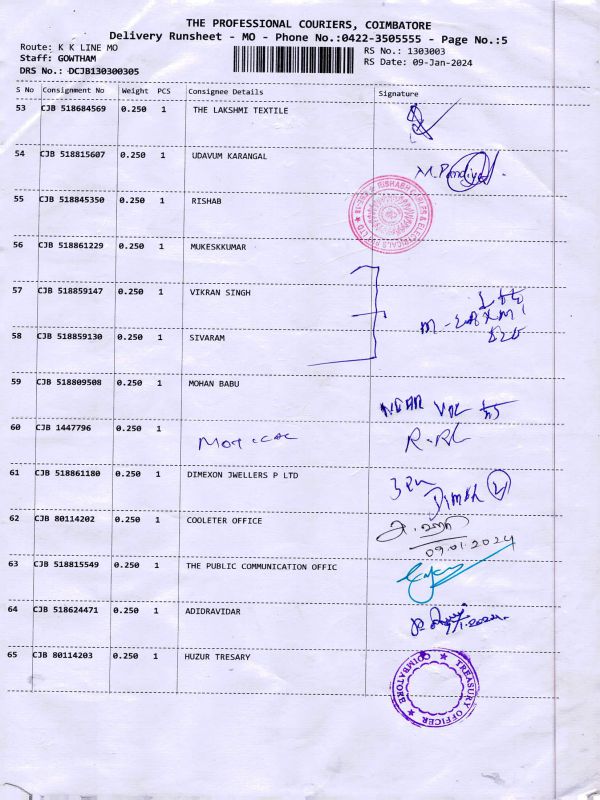 THE PROFESSIONAL COURIERS, COIMBATORE
Delivery Runsheet - MO - Phone No.:0422-3505555 - Page No.:5
Route: K K LINE MO
RS No.: 1303003
Staff: GOWTHAM
RS Date: 09-Jan-2024
DRS No.: DCJB130300305
S No Consignment No Weight PCS Consignee Details Signature
53 CJB 518684569 0.250 1 THE LAKSHMI TEXTILE
54 CJB 518815607 0.250 1 UDAVUM KARANGAL
55 CJB 518845350 0.250 1 RISHAB
56 CJB 518861229 0.250 1 MUKESKKUMAR
57 CJB 518859147 0.250 1 VIKRAN SINGH
58 CJB 518859130 0.250 1 SIVARAM
59 CJB 518809508 0.250 1 MOHAN BABU
60 CJB 1447796 0.250 1
61 CJB 518861180 0.250 1 DIMEXON JWELLERS P LTD
62 CJB 80114202 0.250 1 COOLETER OFFICE
09.01.2024
63 CJB 518815549 0.250 1 THE PUBLIC COMMUNICATION OFFIC
64 CJB 518624471 0.250 1 ADIDRAVIDAR
65 CJB 80114203 0.250 1 HUZUR TRESARY
TREASURY OFFICER COIMBATORE